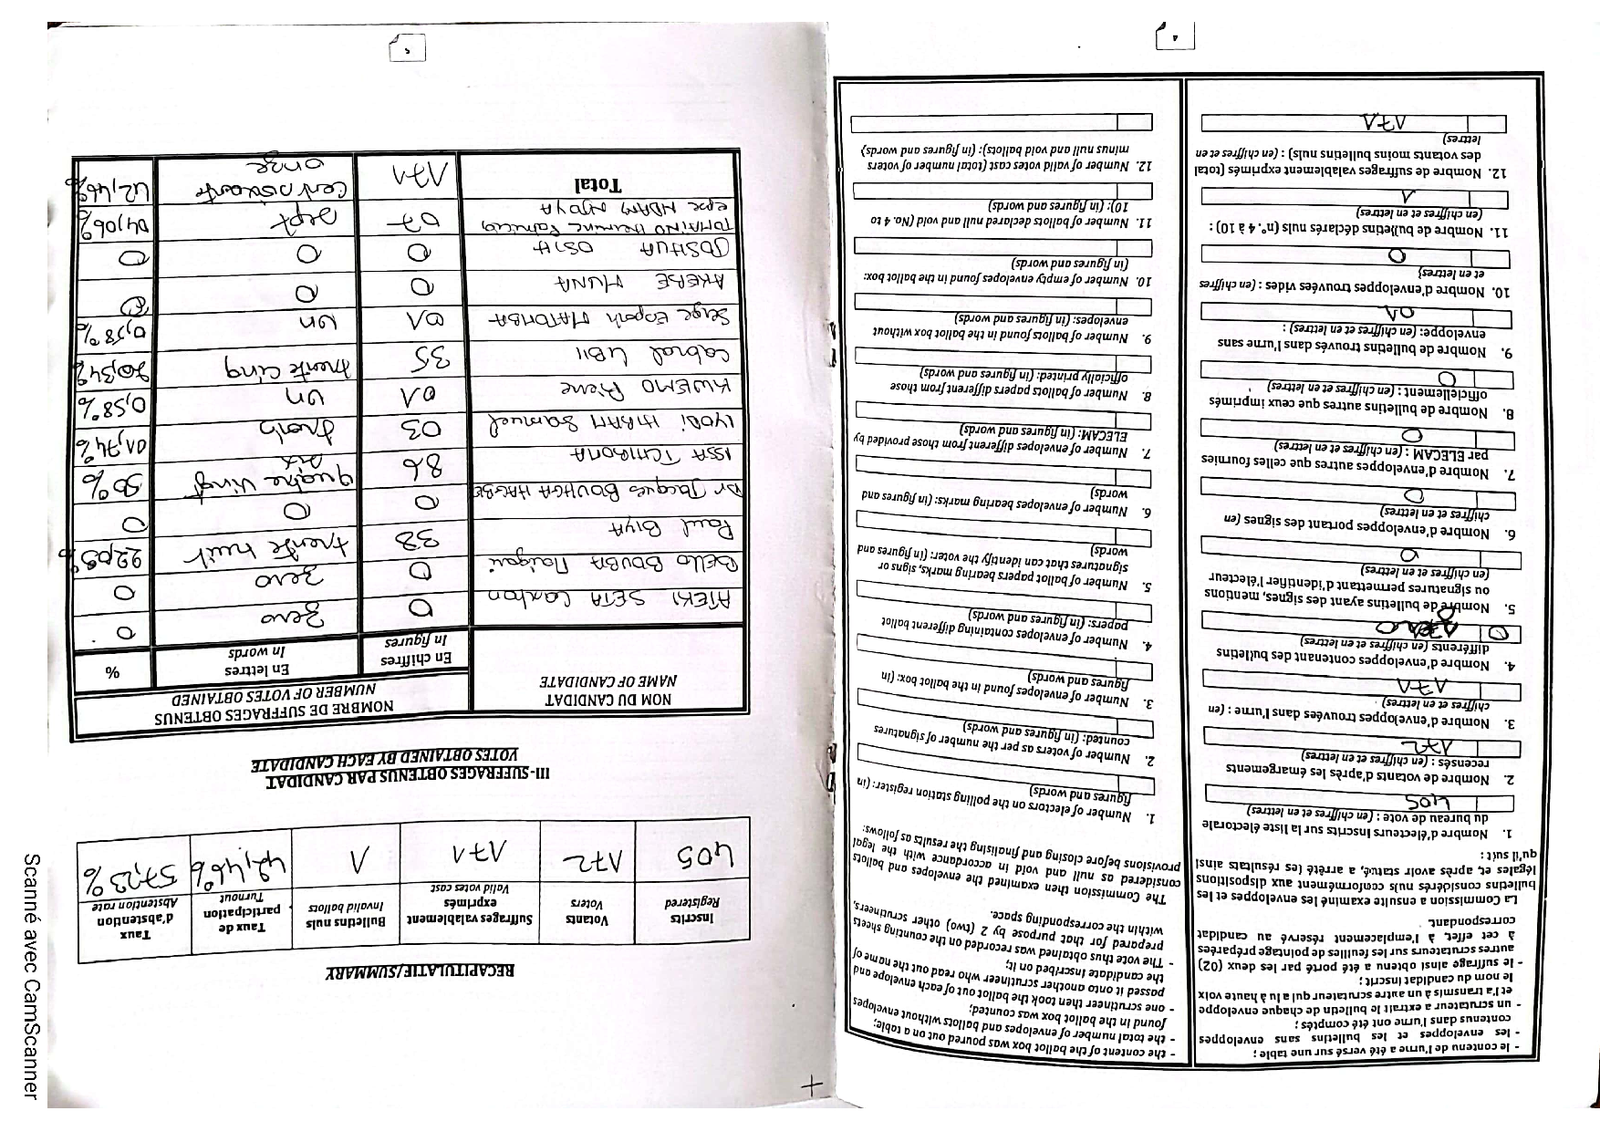 - le contenu de l'urne a été versé sur une table ;
- les enveloppes et les bulletins sans enveloppes
contenus dans l'urne ont été comptés ;
- un scrutateur a extrait le bulletin de chaque enveloppe
et l'a transmis à un autre scrutateur qui a lu à haute voix
le nom du candidat inscrit ;
- le suffrage ainsi obtenu a été porté par les deux (02)
autres scrutateurs sur les feuilles de pointage préparées
à cet effet, à l'emplacement réservé au candidat
correspondant.
La Commission a ensuite examiné les enveloppes et les
bulletins considérés nuls conformément aux dispositions
légales et, après avoir statué, a arrêté les résultats ainsi
qu'il suit :
1. Nombre d'électeurs inscrits sur la liste électorale
du bureau de vote : (en chiffres et en lettres)
405
2. Nombre de votants d'après les émargements
recensés : (en chiffres et en lettres)
172
3. Nombre d'enveloppes trouvées dans l'urne : (en
chiffres et en lettres)
171
4. Nombre d'enveloppes contenant des bulletins
différents (en chiffres et en lettres)
0
5. Nombre de bulletins ayant des signes, mentions
ou signatures permettant d'identifier l'électeur
(en chiffres et en lettres)
0
6. Nombre d'enveloppes portant des signes (en
chiffres et en lettres)
0
7. Nombre d'enveloppes autres que celles fournies
par ELECAM : (en chiffres et en lettres)
0
8. Nombre de bulletins autres que ceux imprimés
officiellement : (en chiffres et en lettres)
0
9. Nombre de bulletins trouvés dans l'urne sans
enveloppe: (en chiffres et en lettres) :
01
10. Nombre d'enveloppes trouvées vides : (en chiffres
et en lettres)
0
11. Nombre de bulletins déclarés nuls (n°. 4 à 10) :
(en chiffres et en lettres)
1
12. Nombre de suffrages valablement exprimés (total
des votants moins bulletins nuls) : (en chiffres et en
lettres)
171
- the content of the ballot box was poured out on a table;
- the total number of envelopes and ballots without envelopes
found in the ballot box was counted;
- one scrutineer then took the ballot out of each envelope and
passed it onto another scrutineer who read out the name of
the candidate inscribed on it;
- The vote thus obtained was recorded on the counting sheets
prepared for that purpose by 2 (two) other scrutineers,
within the corresponding space.
The Commission then examined the envelopes and ballots
considered as null and void in accordance with the legal
provisions before closing and finalising the results as follows:
1. Number of electors on the polling station register: (in
figures and words)
2. Number of voters as per the number of signatures
counted: (in figures and words)
3. Number of envelopes found in the ballot box: (in
figures and words)
4. Number of envelopes containing different ballot
papers: (in figures and words)
5. Number of ballot papers bearing marks, signs or
signatures that can identify the voter: (in figures and
words)
6. Number of envelopes bearing marks: (in figures and
words)
7. Number of envelopes different from those provided by
ELECAM: (in figures and words)
8. Number of ballots papers different from those
officially printed: (in figures and words)
9. Number of ballots found in the ballot box without
envelopes: (in figures and words)
10. Number of empty envelopes found in the ballot box:
(in figures and words)
11. Number of ballots declared null and void (No. 4 to
10): (in figures and words)
12. Number of valid votes cast (total number of voters
minus null and void ballots): (in figures and words)
4
RECAPITULATIF/SUMMARY
Inscrits Registered | Votants Voters | Suffrages valablement exprimés Valid votes cast | Bulletins nuls Invalid ballots | Taux de participation Turnout | Taux d'abstention Abstention rate
405 172 171 1 42,46% 57,23%
III- SUFFRAGES OBTENUS PAR CANDIDAT
VOTES OBTAINED BY EACH CANDIDATE
NOM DU CANDIDAT NOMBRE DE SUFFRAGES OBTENUS
NAME OF CANDIDATE NUMBER OF VOTES OBTAINED
En chiffres En lettres %
In figures In words
ATEKI SETA Caxton 0 zero 0
BELLO BOUBA Maigari 0 zero 0
Paul BIYA 38 trente huit 22,09%
Dr Jacques BOUHGA HAGBE 0 0 0
ISSA TCHIROMA 86 quatre vingt six 50%
LYODI HIRAM Samuel 03 trois 01,74%
KWEMO Pierre 01 un 0,58%
Cabral LIBII 35 trente cinq 20,34%
Serge Espoir MATOMBA 01 un 0,58%
AKERE MUNA 0 0 0
JOSHUA OSIH 0 0 0
TOMAINO Hermine Patricia 07 sept 04,06%
epse NDAM NJOYA
Total 171 cent soixante onze 42,46%
5
Scanné avec CamScanner